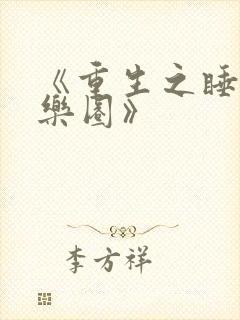 《重生之睡
樂園》
李方祥